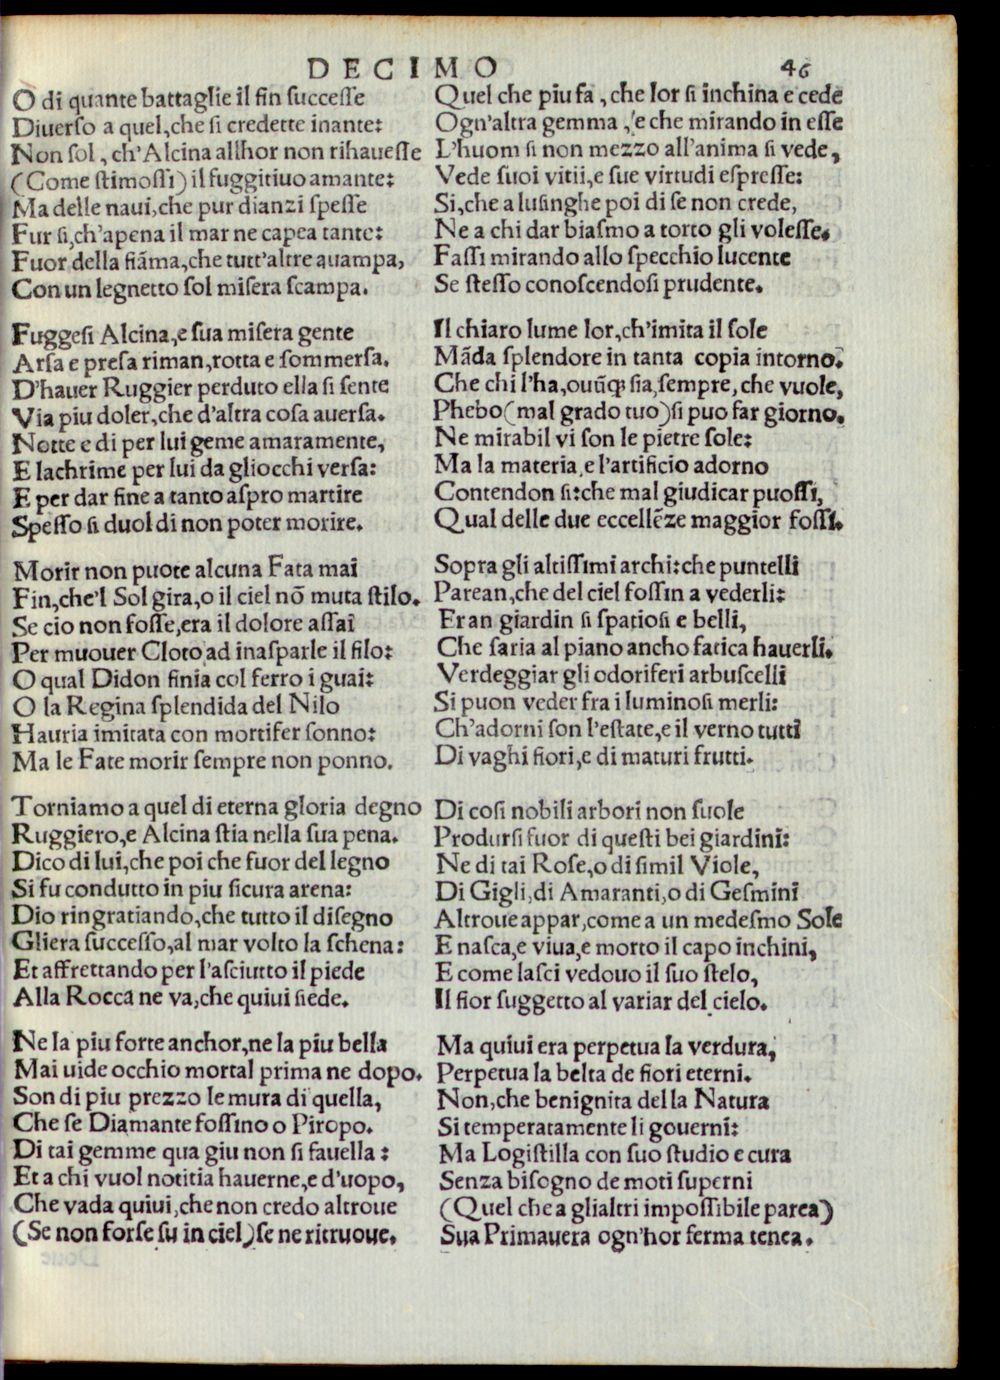 DECIMO 46
O di quante battaglie il fin successe
Diuerso a quel,che si credette inante:
Non sol, ch'Alcina allhor non rihauesse
(Come stimossi) il fuggitiuo amante:
Ma delle naui,che pur dianzi spesse
Fur si,ch'apena il mar ne capea tante:
Fuor della fiãma,che tutt'altre auampa,
Con un legnetto sol misera scampa.
Fuggesi Alcina,e sua misera gente
Arsa e presa riman,rotta e sommersa.
D'hauer Ruggier perduto ella si sente
Via piu doler,che d'altra cosa auersa.
Notte e di per lui geme amaramente,
E lachrime per lui da gliocchi versa:
E per dar fine a tanto aspro martire
Spesso si duol di non poter morire.
Morir non puote alcuna Fata mai
Fin,che'l Sol gira,o il ciel nõ muta stilo.
Se cio non fosse,era il dolore assai
Per muouer Cloto ad inasparle il filo:
O qual Didon finia col ferro i guai:
O la Regina splendida del Nilo
Hauria imitata con mortifer sonno:
Ma le Fate morir sempre non ponno.
Torniamo a quel di eterna gloria degno
Ruggiero,e Alcina stia nella sua pena.
Dico di lui,che poi che fuor del legno
Si fu condutto in piu sicura arena:
Dio ringratiando,che tutto il disegno
Gliera successo,al mar volto la schena:
Et affrettando per l'asciutto il piede
Alla Rocca ne va,che quiui siede.
Ne la piu forte anchor,ne la piu bella
Mai uide occhio mortal prima ne dopo.
Son di piu prezzo le mura di quella,
Che se Diamante fossino o Piropo.
Di tai gemme qua giu non si fauella:
Et a chi vuol notitia hauerne,e d'uopo,
Che vada quiui,che non credo altroue
(Se non forse su in ciel) se ne ritruoue.
Quel che piu fa, che lor si inchina e cede
Ogn'altra gemma, e che mirando in esse
L'huom si non mezzo all'anima si vede,
Vede suoi vitii,e sue virtudi espresse:
Si,che a lusinghe poi di se non crede,
Ne a chi dar biasmo a torto gli volesse.
Fassi mirando allo specchio lucente
Se stesso conoscendosi prudente.
Il chiaro lume lor,ch'imita il sole
Mãda splendore in tanta copia intorno.
Che chi l'ha,ouũq; sia,sempre,che vuole,
Phebo(mal grado tuo)si puo far giorno.
Ne mirabil vi son le pietre sole:
Ma la materia,e l'artificio adorno
Contendon si:che mal giudicar puossi,
Qual delle due eccellẽze maggior fossi.
Sopra gli altissimi archi:che puntelli
Parean,che del ciel fossin a vederli:
Eran giardin si spatiosi e belli,
Che saria al piano ancho fatica hauerli.
Verdeggiar gli odoriferi arbuscelli
Si puon veder fra i luminosi merli:
Ch'adorni son l'estate,e il verno tutti
Di vaghi fiori,e di maturi frutti.
Di cosi nobili arbori non suole
Prodursi fuor di questi bei giardini:
Ne di tai Rose,o di simil Viole,
Di Gigli,di Amaranti,o di Gesmini
Altroue appar,come a un medesmo Sole
E nasca,e viua,e morto il capo inchini,
E come lasci vedouo il suo stelo,
Il fior suggetto al variar del cielo.
Ma quiui era perpetua la verdura,
Perpetua la belta de fiori eterni.
Non,che benignita della Natura
Si temperatamente li gouerni:
Ma Logistilla con suo studio e cura
Senza bisogno de moti superni
(Quel che a glialtri impossibile parea)
Sua Primauera ogn'hor ferma tenea.